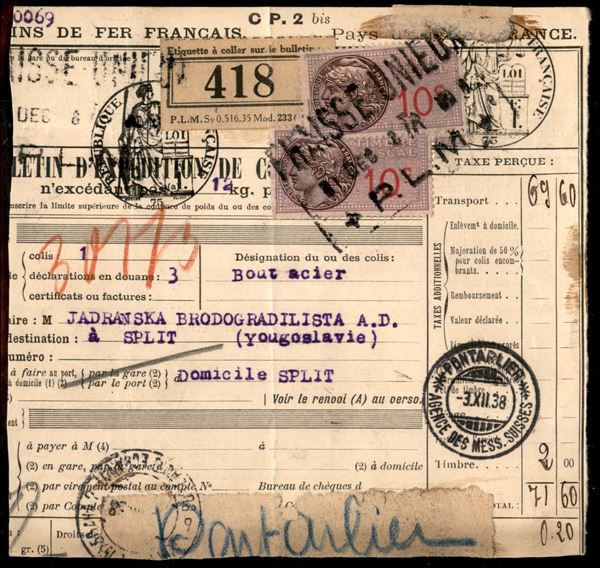 0069
C P. 2 bis
INS DE FER FRANÇAIS.
Pays
FRANCE.
Etiquette à coller sur le bulletin
418
P.L.M. Sy 0.516.35 Mod. 233
FRAISSE-UNIEUX
P.L.M.
10
10
RÉPUBLIQUE FRANÇAISE
LOI
LOI
75
LETIN D'EXPÉDITION DE C
n'excédant pas 12 kg.
inscrire la limite supérieure de la coupure de poids du ou des co
TAXE PERÇUE :
Transport 69 60
Enlèvemt à domicile.
Majoration de 50 % pour colis encombrants.
TAXES ADDITIONNELLES
Remboursement
Valeur déclarée
colis 1
Désignation du ou des colis:
déclarations en douane : 3
Bout acier
certificats ou factures :
aire : M JADRANSKA BRODOGRADILISTA A.D.
destination : à SPLIT (yougoslavie)
numéro :
à faire au port, par la gare (2)
à domicile (1) (2) par le port (2)
Domicile SPLIT
Voir le renvoi (A) au verso.
PONTARLIER
-3.XII.38
AGENCE DES MESS. SUISSES
à payer à M (4) à
(2) en gare, par
(2) à domicile
Timbre. 2 00
(2) par virement postal au compte No
Bureau de chèques d
(2) par Compte
TOTAL : 71 60
Droits de
gr. (5)
Pontarlier
0.20